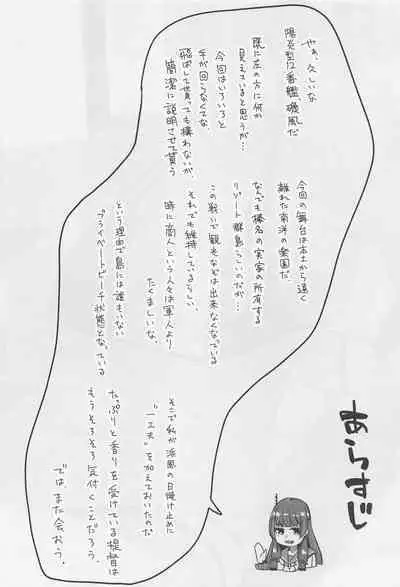 あらすじ
やぁ、久しいな
陽炎型12番艦磯風だ
既に左の方に何か
見えていると思うが…
今回はいろいろと
手が回らなくてな
飛ばして貰っても構わないが、
簡潔に説明させて貰う
今回の舞台は本土から遠く
離れた南洋の楽園だ。
なんでも榛名の実家の所有する
リゾート群島らしいのだが…
この戦いで観光などは出来なくなっている
それでも維持しているらしい、
時に商人という人々は軍人より
たくましいな。
という理由で島には誰もいない
プライベートビーチ状態となっている
そこで私が浜風の日焼け止めに
"一工夫"を加えておいたのだ
たっぷりと香りを受けている提督は
もうそろそろ気付くことだろう。
では、また会おう。